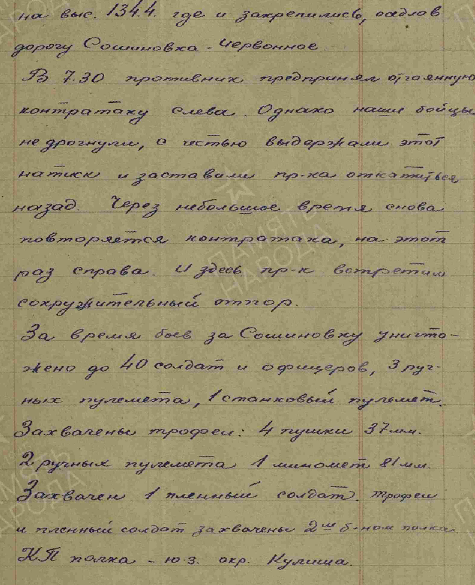 на выс. 134.4. где и закрепились, оседлав
дорогу Сошиновка - Червонное
В 7.30 противник предпринял отчаянную
контратаку слева. Однако наши бойцы
не дрогнули, с честью выдержали этот
натиск и заставили пр-ка откатиться
назад. Через небольшое время снова
повторяется контратака, на этот
раз справа. И здесь пр-к встретил
сокрушительный отпор.
За время боев за Сошиновку уничто-
жено до 40 солдат и офицеров, 3 руч-
ных пулемета, 1 станковый пулемет.
Захвачены трофеи: 4 пушки 37 мм.
2 ручных пулемета 1 миномет 81 мм.
Захвачен 1 пленный солдат. Трофеи
и пленный солдат захвачены 2ым б-ном полка
КП полка - ю.з. окр. Кулиша.